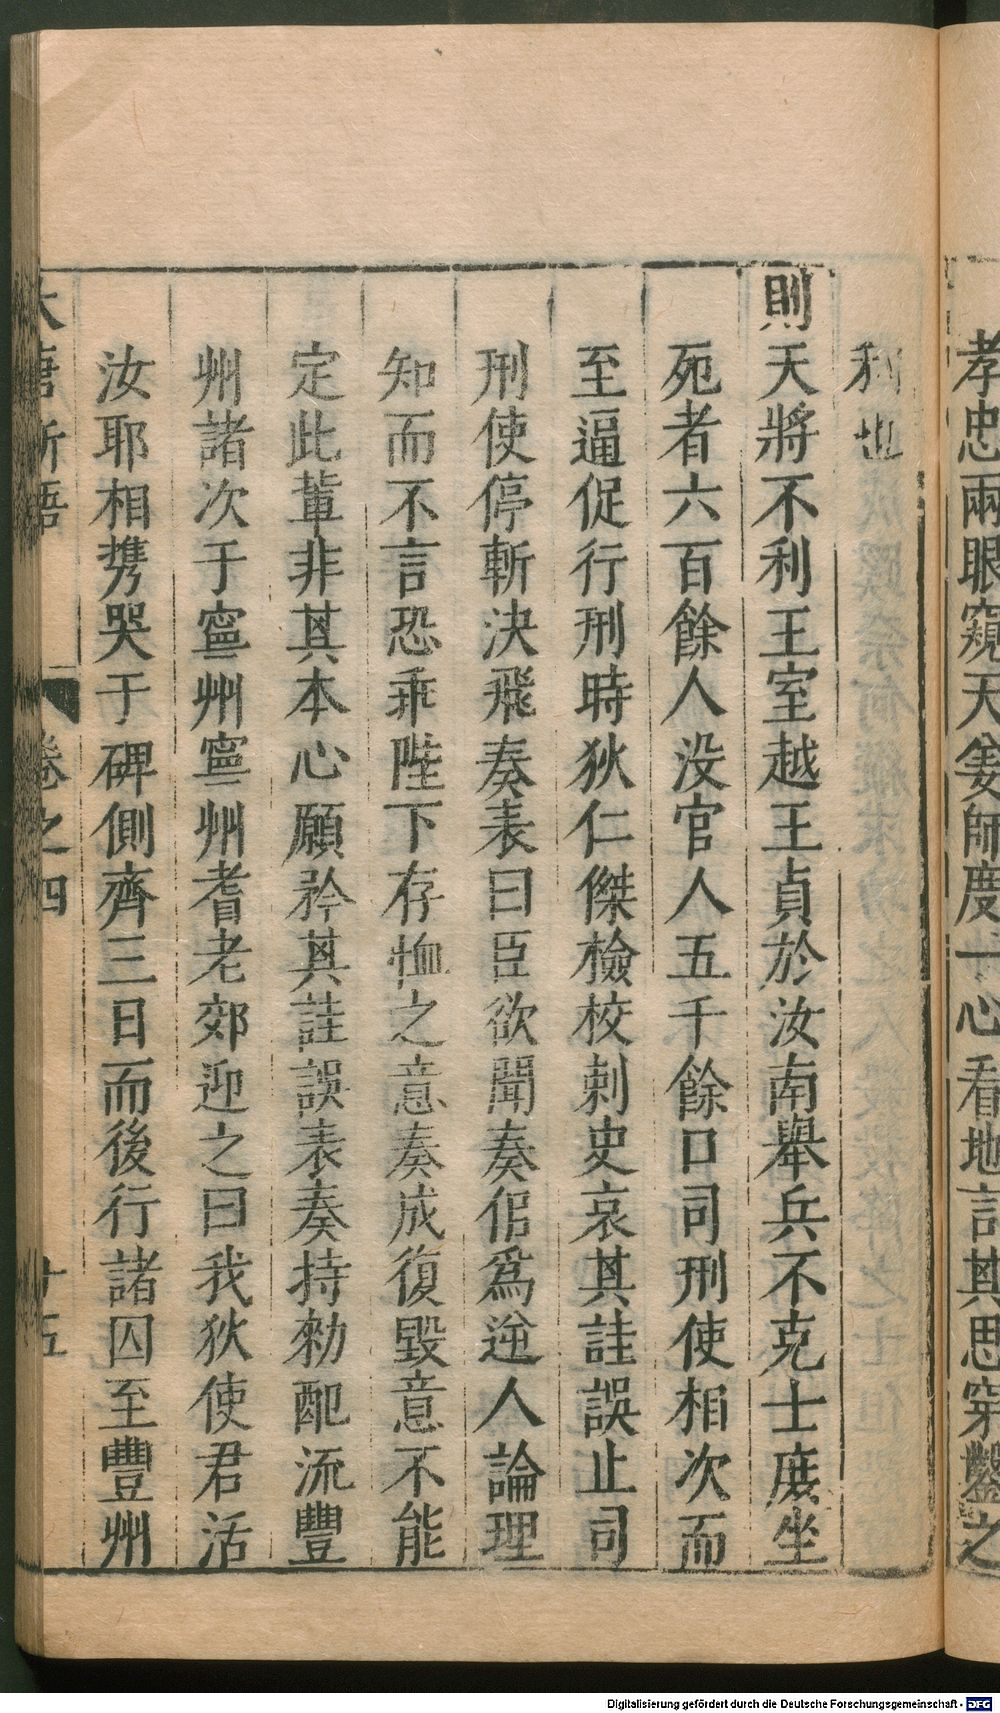 孝忠兩眼窺天姜師度一心看地言其思穿鑿之
利也
則天將不利王室越王貞於汝南舉兵不克士庶坐
死者六百餘人没官人五千餘口司刑使相次而
至逼促行刑時狄仁傑檢校刺史哀其詿誤止司
刑使停斬決飛奏表曰臣欲聞奏侣爲逆人論理
知而不言恐乖陛下存恤之意奏成復毀意不能
定此輩非其本心願矜其詿誤表奏持勑配流豐
州諸次于寧州寧州耆老郊迎之曰我狄使君活
汝耶相携哭于碑側齊三日而後行諸囚至豐州
大唐新語 卷之四 十五
Digitalisierung gefördert durch die Deutsche Forschungsgemeinschaft - DFG